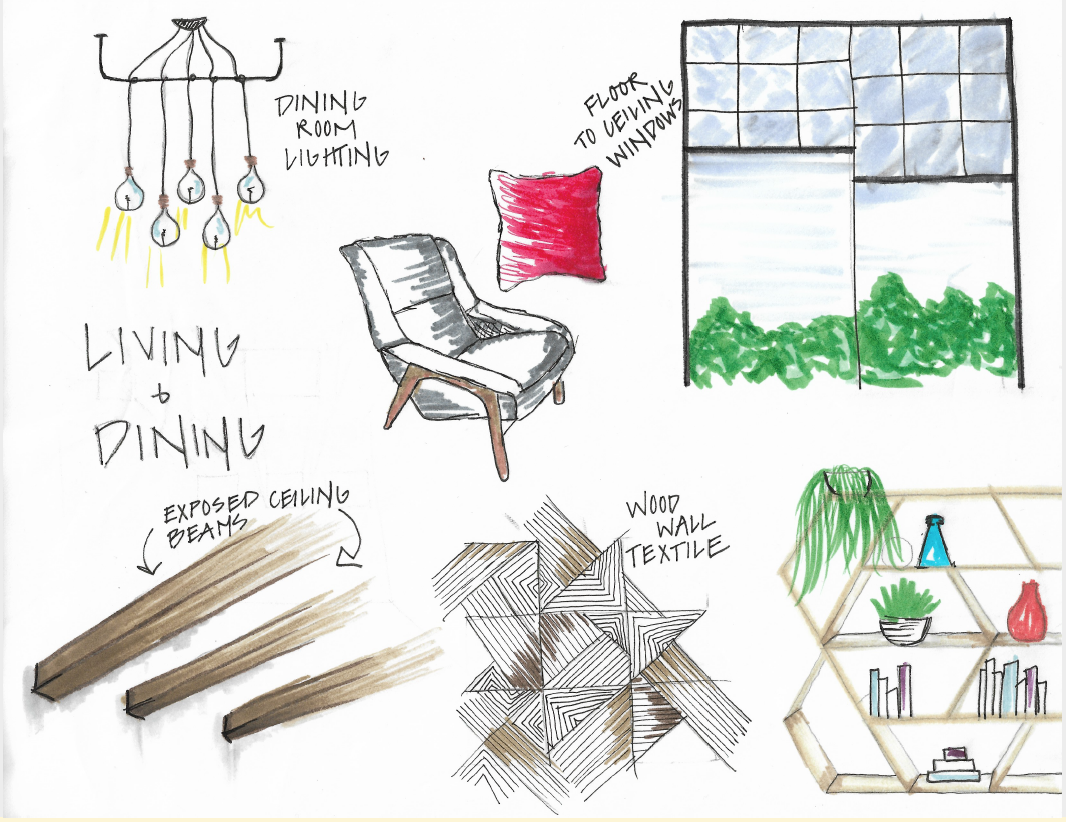 DINING
ROOM
LIGHTING
FLOOR
TO CEILING
WINDOWS
LIVING
&
DINING
EXPOSED CEILING
BEAMS
WOOD
WALL
TEXTILE